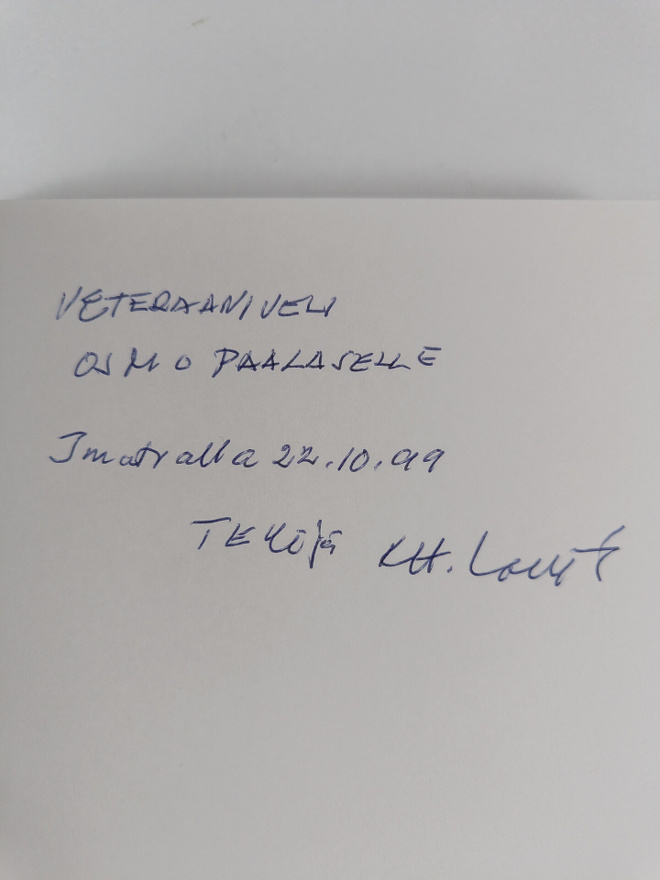 VETERAANIVELI
OSMO PAALASELLE
Imatralla 22.10.99
TEKijä KH.